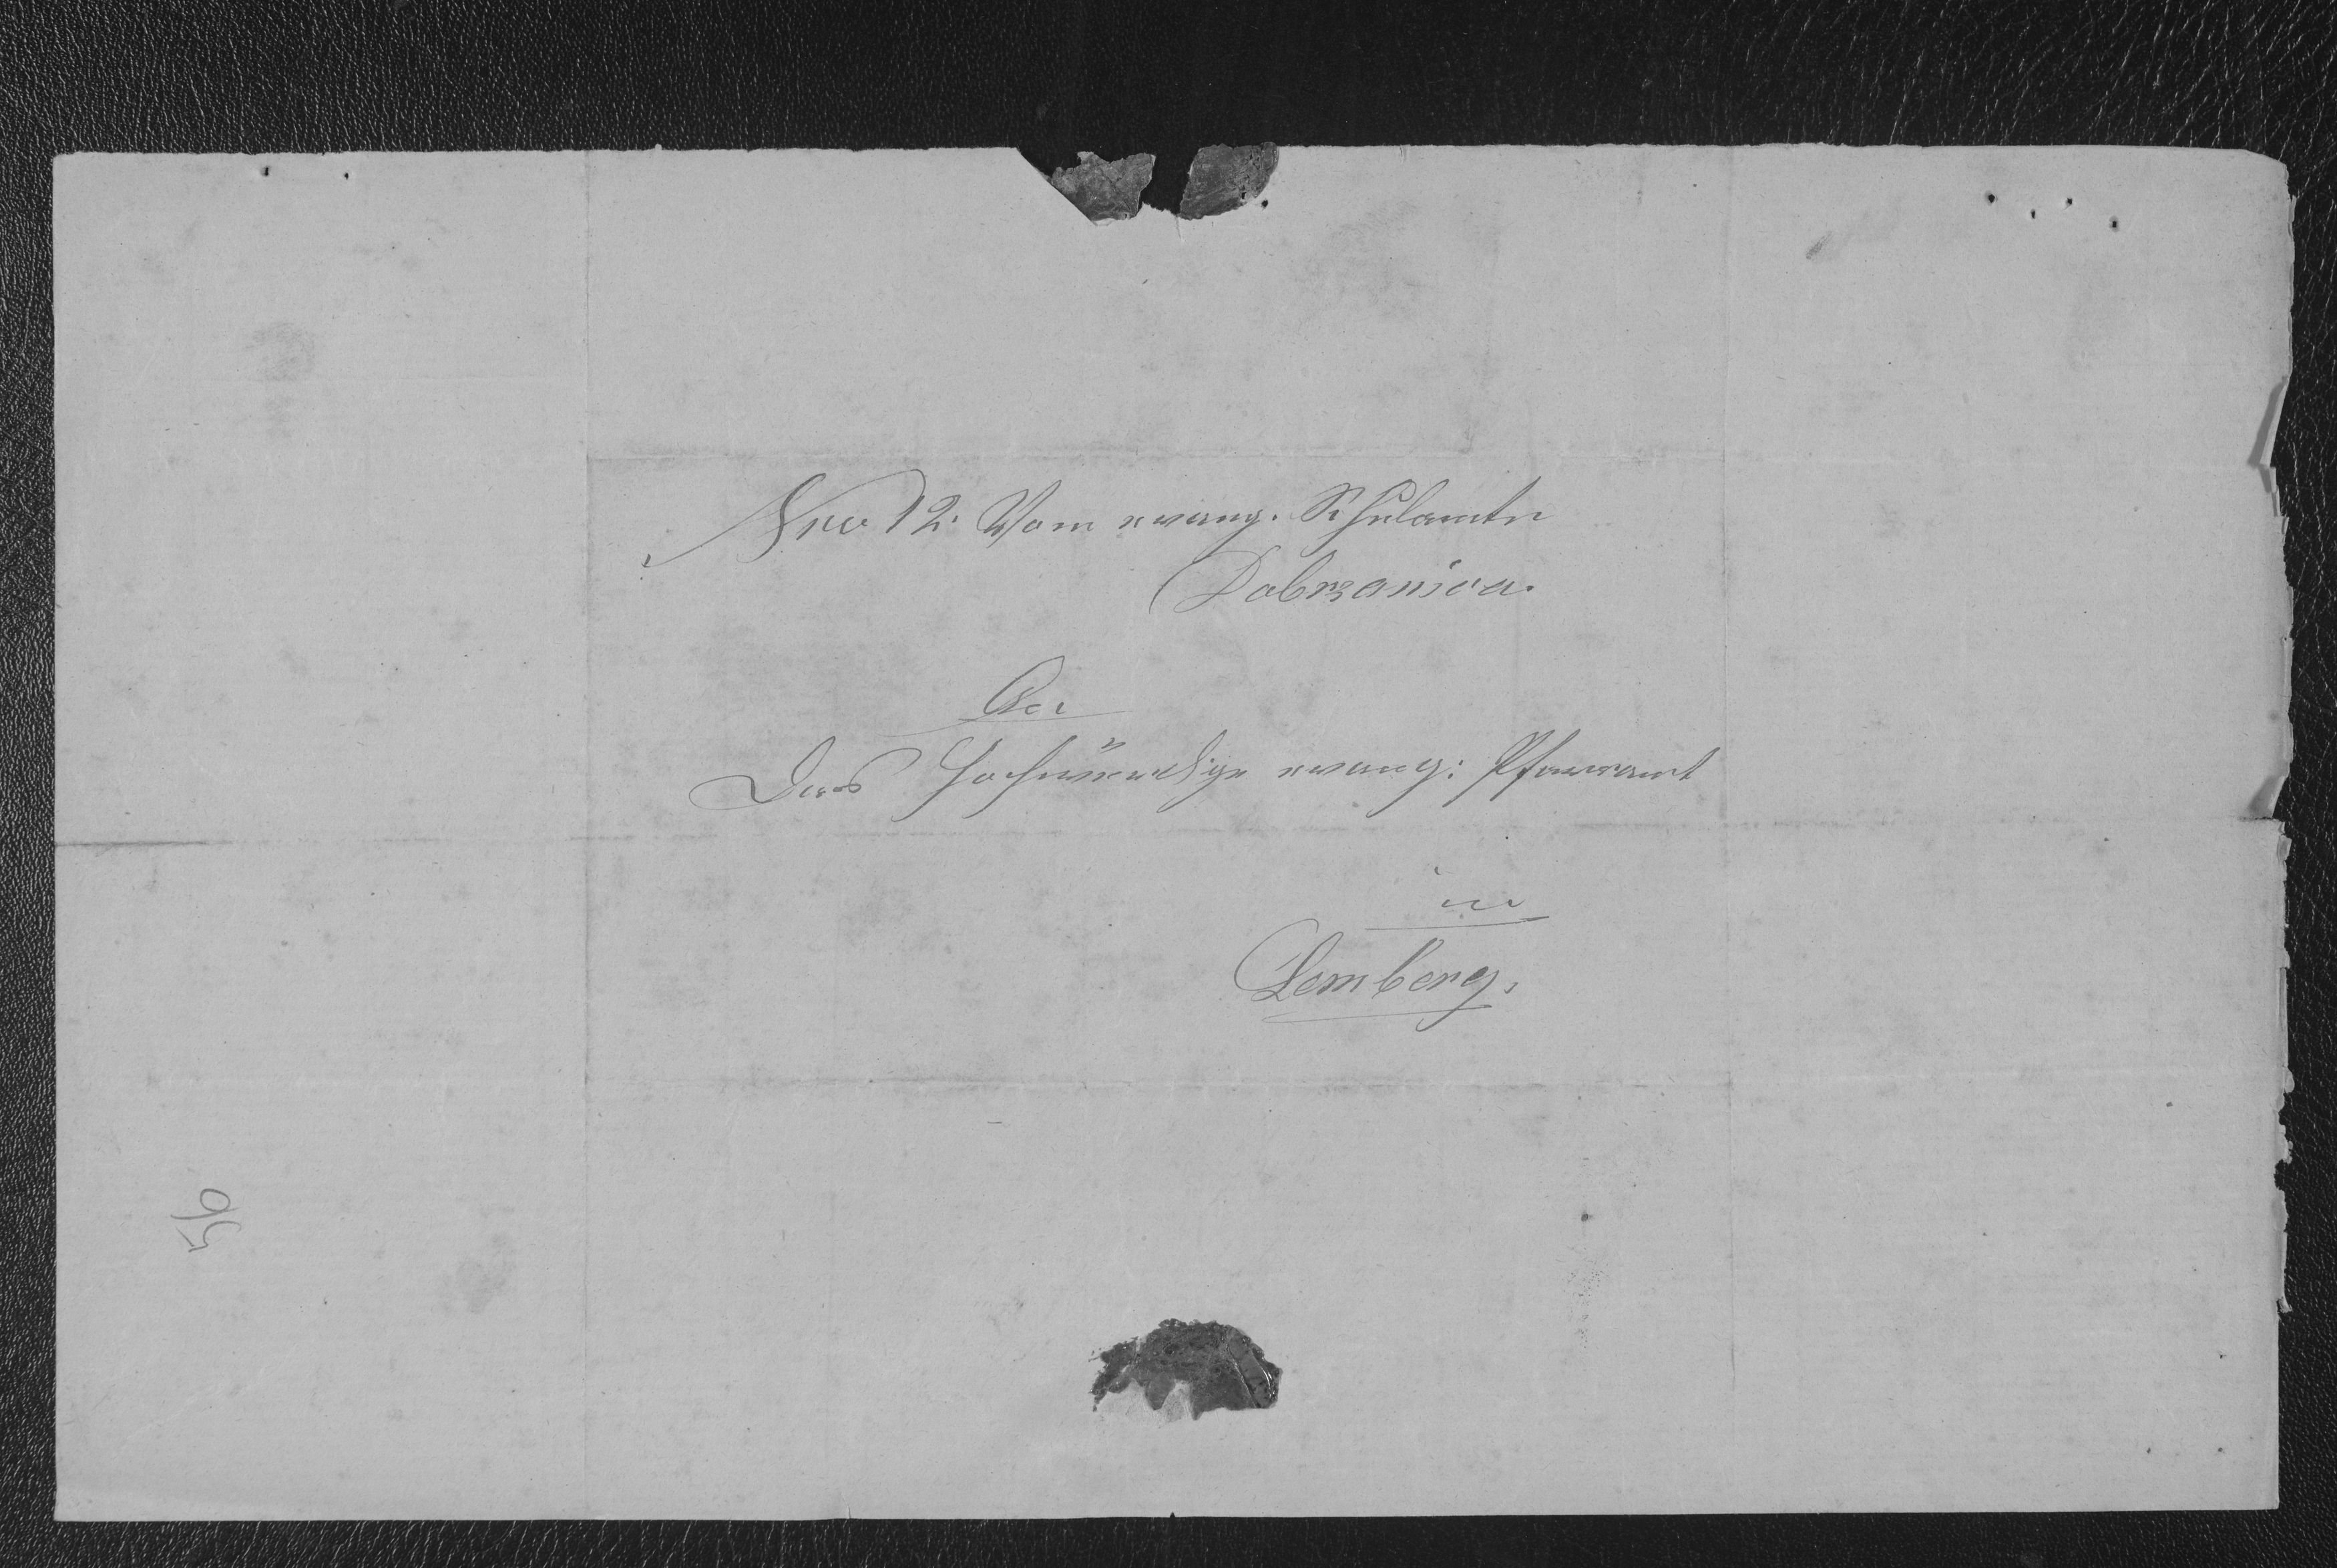 Nro 12. Vom evang. Schulamte
Dobrzanica.
An
Das hochwürdige evang: Pfarramt
in
Lemberg.
56